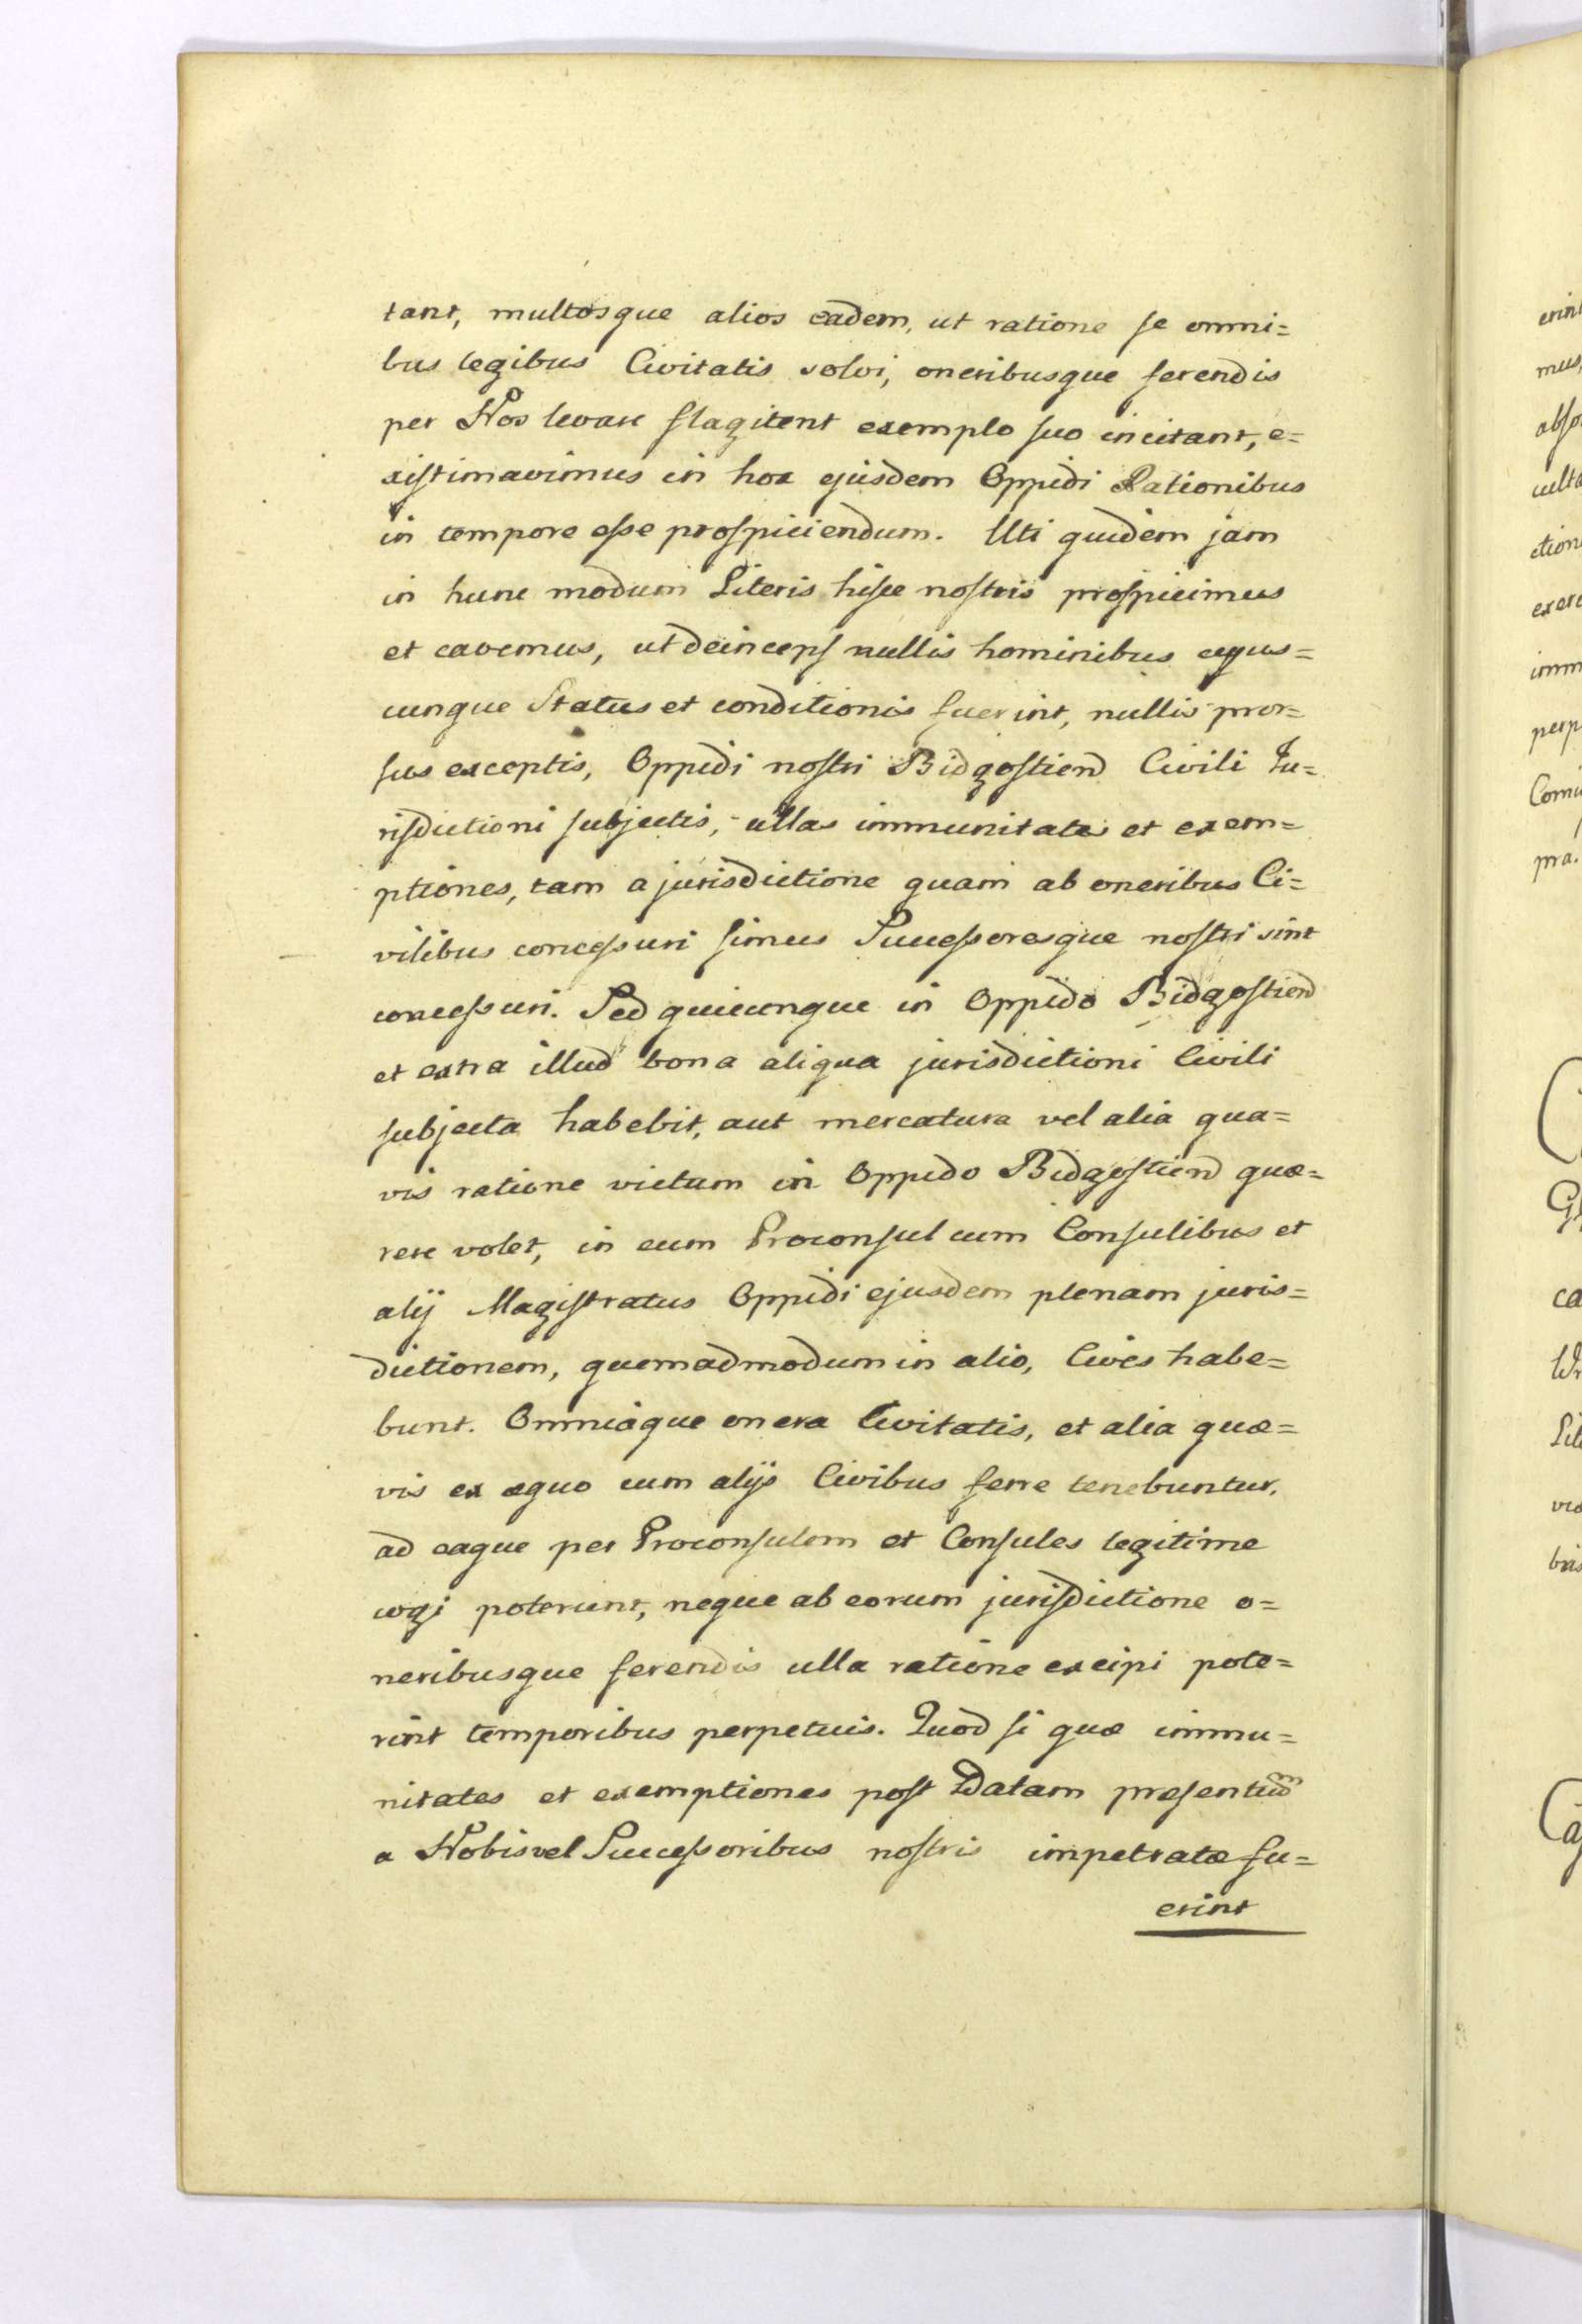 tant, multosque alios eadem, ut ratione se omni=
bus legibus Civitatis solvi, oneribusque ferendis
per Nos levare flagitent exemplo suo incitant, e=
xistimavimus in hox ejusdem Oppidi Rationibus
in tempore esse prospiciendum. Uti quidem jam
in hunc modum Literis hisce nostris prospicimus
et cavemus, ut deinceps nullis hominibus cujus=
cunque Status et conditionis fuerint, nullis pror=
sus exceptis, Oppidi nostri Bidgostiend Civili Ju=
risdictioni subjectis, ullas immunitates et exem=
ptiones, tam a jurisdictione quam ab oneribus Ci=
vilibus concessuri simus Successoresque nostri sint
concessuri. Sed quicunque in Oppido Bidgostiend
et extra illud bona aliqua jurisdictioni Civili
subjecta habebit, aut mercatura vel alia qua=
vis ratione victum in Oppido Bidgostiend quæ=
rere volet, in eum Proconsul cum Consulibus et
alij Magistratus Oppidi ejusdem plenam juris=
dictionem, quemadmodum in alio, Cives habe=
bunt. Omniaque onera Civitatis, et alia quæ=
vis ex æquo cum alijs Civibus ferre tenebuntur,
ad eaque per Proconsulem et Consules legitime
cogi poterunt, neque ab eorum jurisdictione o=
neribusque ferendis ulla ratione excipi pote=
rint temporibus perpetuis. Quod si quæ immu=
nitates et exemptiones post Datam præsentium
a Nobis vel Successoribus nostris impetratæ fu=
erint